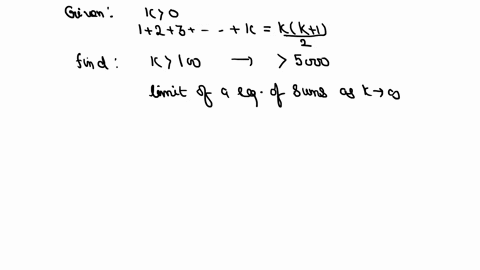 Given: K>0
1+2+3+ - - - +K = K(K+1)/2
find: K>100 → > 5000
limit of a eq. of sums as K→∞